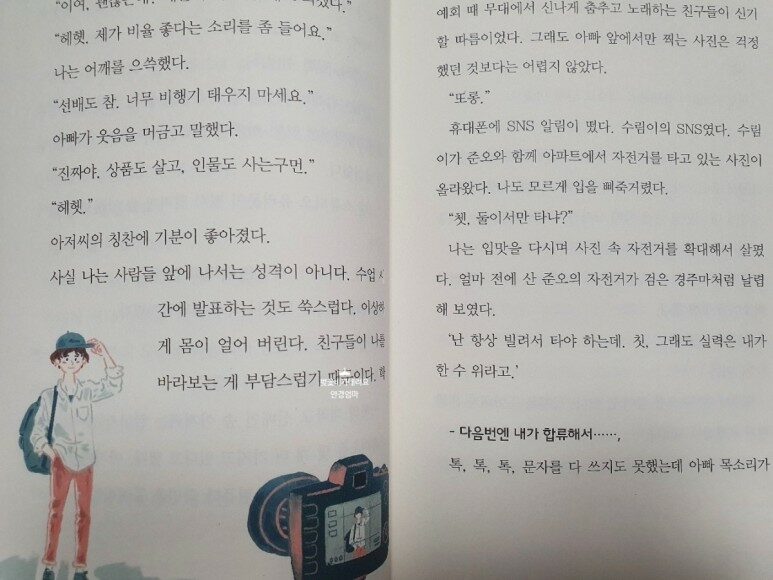 "이여, 괜찮은데.
"헤헷. 제가 비율 좋다는 소리를 좀 들어요."
나는 어깨를 으쓱했다.
"선배도 참. 너무 비행기 태우지 마세요."
아빠가 웃음을 머금고 말했다.
"진짜야. 상품도 살고, 인물도 사는구먼."
"헤헷."
아저씨의 칭찬에 기분이 좋아졌다.
사실 나는 사람들 앞에 나서는 성격이 아니다. 수업 시
간에 발표하는 것도 쑥스럽다. 이상하
게 몸이 얼어 버린다. 친구들이 나를
바라보는 게 부담스럽기 때문이다. 학
안경엄마
예회 때 무대에서 신나게 춤추고 노래하는 친구들이 신기
할 따름이었다. 그래도 아빠 앞에서만 찍는 사진은 걱정
했던 것보다는 어렵지 않았다.
"또롱."
휴대폰에 SNS 알림이 떴다. 수림이의 SNS였다. 수림
이가 준오와 함께 아파트에서 자전거를 타고 있는 사진이
올라왔다. 나도 모르게 입을 삐죽거렸다.
"쳇, 둘이서만 타냐?"
나는 입맛을 다시며 사진 속 자전거를 확대해서 살폈
다. 얼마 전에 산 준오의 자전거가 검은 경주마처럼 날렵
해 보였다.
'난 항상 빌려서 타야 하는데. 칫, 그래도 실력은 내가
한 수 위라고.'
- 다음번엔 내가 합류해서……,
톡, 톡, 톡, 문자를 다 쓰지도 못했는데 아빠 목소리가